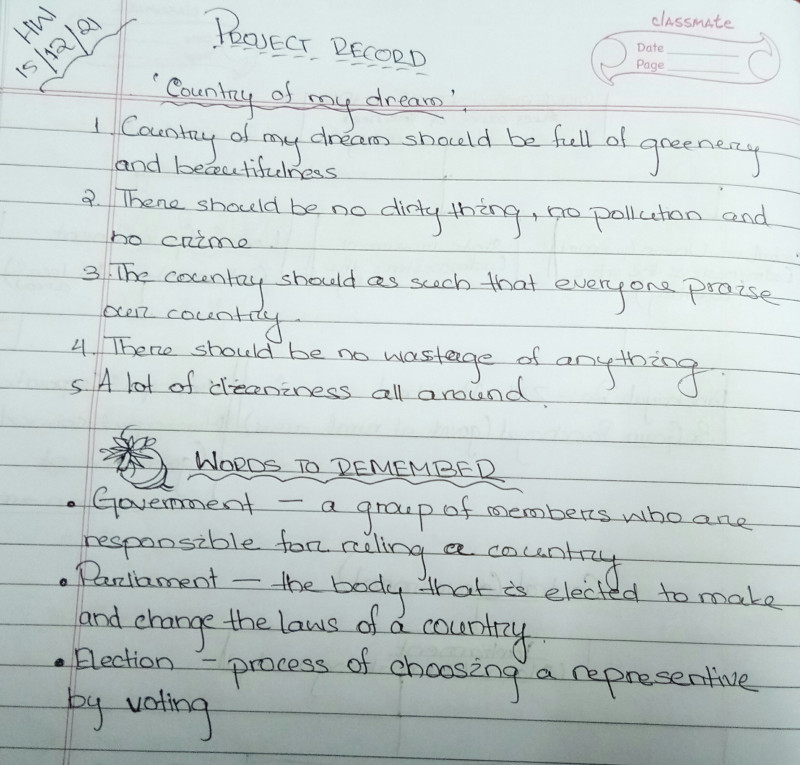 HW
15/12/21
PROJECT RECORD
classmate
Date
Page
'Country of my dream'.
1. Country of my dream should be full of greenery
and beautifulness
2. There should be no dirty thing, no pollution and
no crime.
3. The country should as such that everyone praise
our country.
4. There should be no wastage of anything.
5. A lot of cleaniness all around.
WORDS TO DEMEMBER
• Government – a group of members who are
responsible for ruling a country
• Parliament – the body that is elected to make
and change the laws of a country.
• Election – process of choosing a representive
by voting